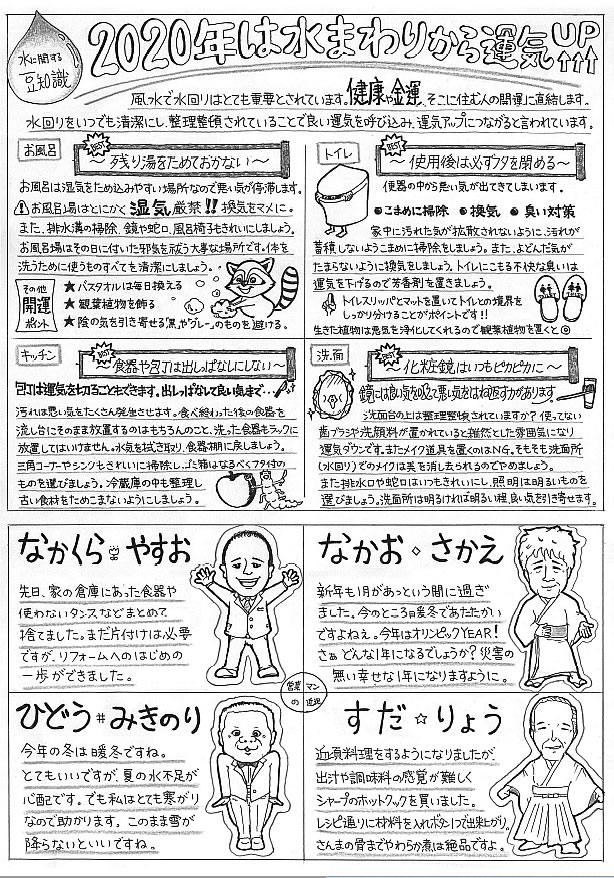 水に関する
豆知識
2020年は水まわりから運気UP
風水で水回りはとても重要とされています。健康や金運、そこに住む人の開運に直結します。
水回りをいつでも清潔にし、整理整頓されていることで良い運気を呼び込み、運気アップにつながると言われています。
お風呂
BEST
～残り湯をためておかない～
お風呂は湿気をため込みやすい場所なので悪い気が停滞します。
お風呂場はとにかく湿気厳禁!!換気をマメに。
また、排水溝の掃除、鏡や蛇口、風呂椅子もきれいにしましょう。
お風呂場はその日に付いた邪気を祓う大事な場所です。体を
洗うために使うものすべてを清潔にしましょう。
その他
開運
ポイント
★バスタオルは毎日換える
★観葉植物を飾る
★陰の気を引き寄せる"黒"や"グレー"のものを避ける。
トイレ
BEST
～使用後は必ずフタを閉める～
便器の中から悪い気が出てきてしまいます。
●こまめに掃除 ●換気 ●臭い対策
家中に汚れた気が拡散されないように、汚れが
蓄積しないようこまめに掃除をしましょう。また、よどんだ気が
たまらないように換気をしましょう。トイレにこもる不快な臭いは
運気を下げるので芳香剤を置きましょう。
トイレスリッパとマットを置いてトイレとの境界を
しっかり分けることがポイントです!!
生きた植物は悪気を浄化してくれるので観葉植物を置くと◎
キッチン
BEST
～食器や包丁は出しっぱなしにしない～
包丁は運気を切ることもできます。出しっぱなしで良い気まで…
汚れは悪い気をたくさん発生させます。食べ終わった後の食器を
流し台にそのまま放置するのはもちろんのこと、洗った食器もラックに
放置してはいけません。水気を拭き取り、食器棚に戻しましょう。
三角コーナーやシンクもきれいに掃除し、ゴミ箱はなるべくフタ付の
ものを選びましょう。冷蔵庫の中も整理し
古い食材をためこまないようにしましょう。
洗面
BEST
～化粧鏡はいつもピカピカに～
鏡には良い気を吸って悪い気をはね返す力があります
洗面台の上は整理整頓されていますか？使ってない
歯ブラシや洗顔料が置かれていると雑然とした雰囲気になり
運気ダウンです。またメイク道具を置くのはNG。そもそも洗面所
(水回り)でのメイクは美を消し去られるのでやめましょう。
また排水口や蛇口はいつもきれいにし、照明は明るいものを
選びましょう。洗面所は明るければ明るい程、良い気を引き寄せます。
なかくら やすお
先日、家の倉庫にあった食器や
使わないタンスなどまとめて
捨てました。まだ片付けは必要
ですが、リフォームへのはじめの
一歩ができました。
なかお◇さかえ
新年も1月があっという間に過ぎ
ました。今のところ暖冬であたたかい
ですよねぇ。今年はオリンピックYEAR!
さぁ どんな1年になるでしょうか？災害の
無い幸せな1年になりますように。
営業マン
の近況
ひどう＃みきのり
今年の冬は暖冬ですね。
とてもいいですが、夏の水不足が
心配です。でも私はとても寒がり
なので助かります。このまま雪が
降らないといいですね。
すだ☆りょう
近頃料理をするようになりましたが、
出汁や調味料の感覚が難しく
シャープのホットクックを買いました。
レシピ通りに材料を入れボタン1つで出来上がり。
さんまの骨までやわらか煮は絶品ですよ。